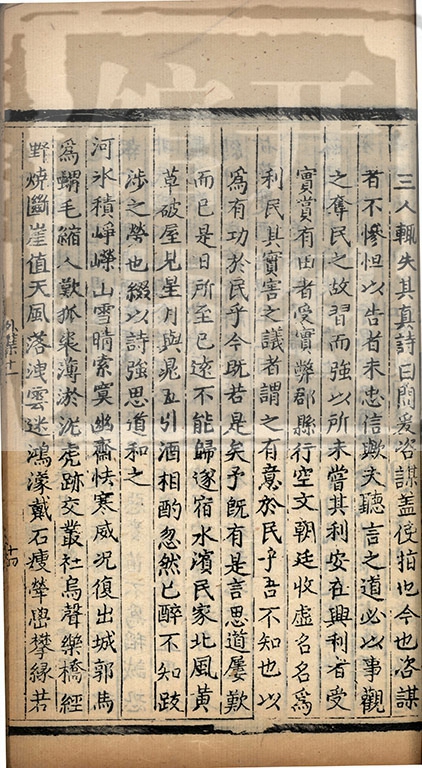 三人輒失其真詩曰周爰咨謀蓋使指也今也咨謀
者不慘怛以告者未忠信歟夫聽言之道必以事觀
之奪民之故習而強以所未嘗其利安在興利者受
實賞有田者受實弊郡縣行空文朝廷收虛名名為
利民其實害之議者謂之有意於民乎吾不知也以
為有功於民乎今既若是矣予既有是言思道屢歎
而已是日所至已遠不能歸遂宿水濱民家北風黃
草破屋見星月與晁五引酒相酌忽然已醉不知跋
涉之勞也綴以詩強思道和之
河水積崢嶸山雪晴索寞幽齋怯寒威況復出城郭馬
為蝟毛縮人歎狐裘薄淤沈虎跡交叢社烏聲樂橋經
野燒斷崖值天風落洩雲迷鴻濛戴石瘦犖嶨攀緣若
外集十一
十四